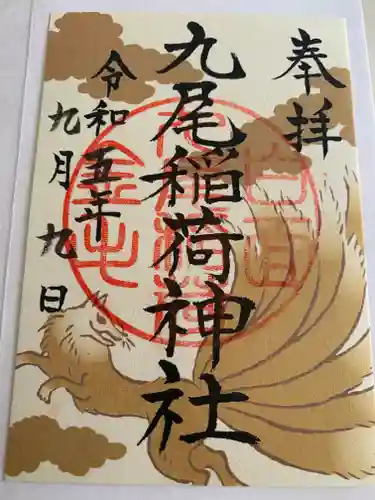 奉拝
九尾稲荷神社
令和五年
九月九日